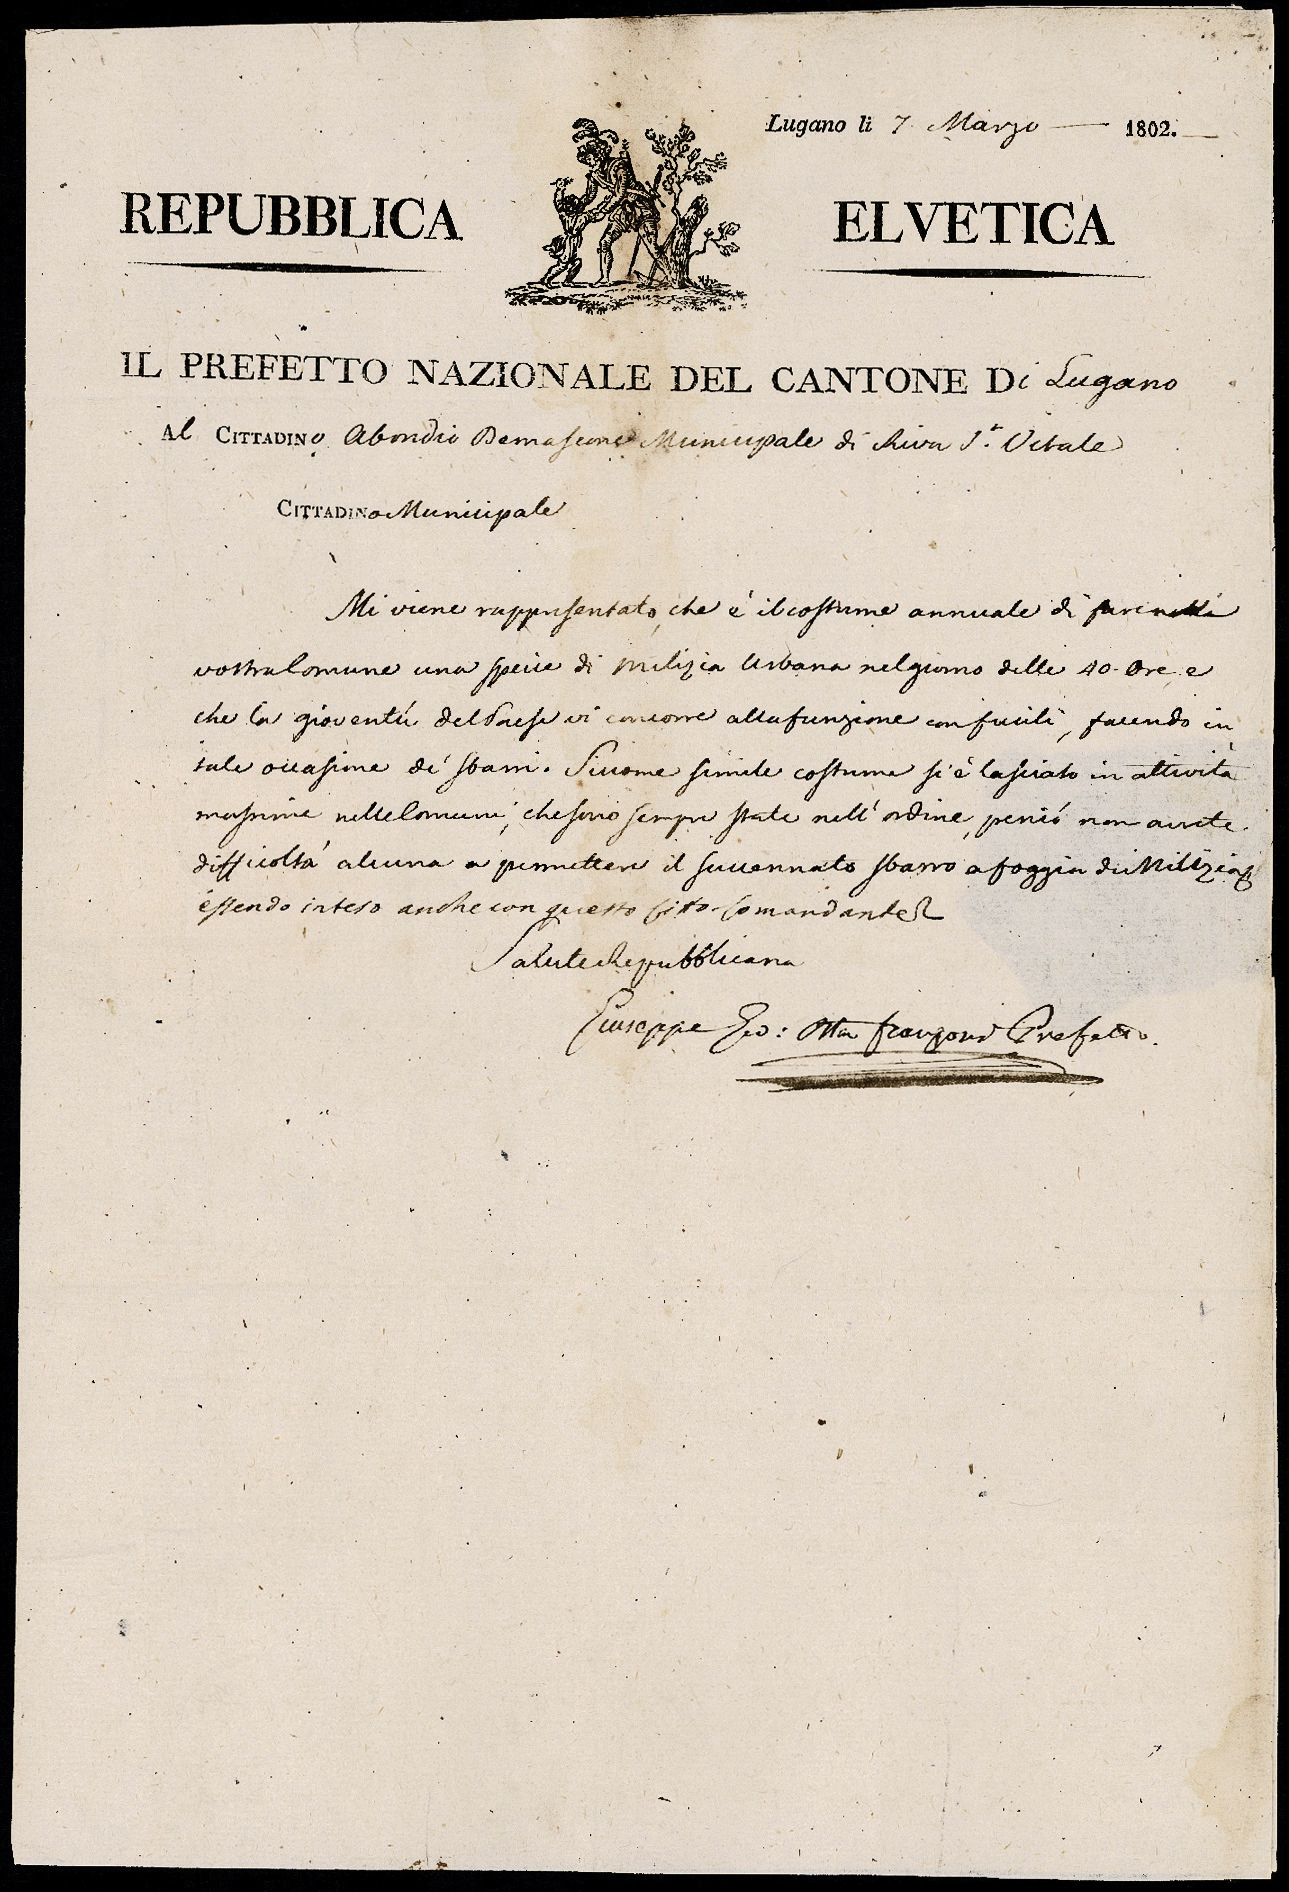 Lugano li 7. Marzo 1802.
REPUBBLICA ELVETICA
IL PREFETTO NAZIONALE DEL CANTONE Di Lugano
Al CITTADINo Abondio Municipale di Riva S.t Vitale
CITTADINo Municipale
Mi viene rappresentato, che è il costume annuale di
vostra Comune una specie di Milizia Urbana nel giorno delle 40. Ore, e
che la gioventù del Paese vi concorre alla funzione con fucili, facendo in
tale occasione de' sbarri. Siccome simile costume si è lasciato in attività
massime nelle Comuni, che sono sempre state nell' ordine, perciò non avrete
difficoltà alcuna a permettere il succennato sbarro a foggia di Milizia
essendo inteso anche con questo Citto Comandante
Salute Repubblicana
Giuseppe franzoni Prefetto.